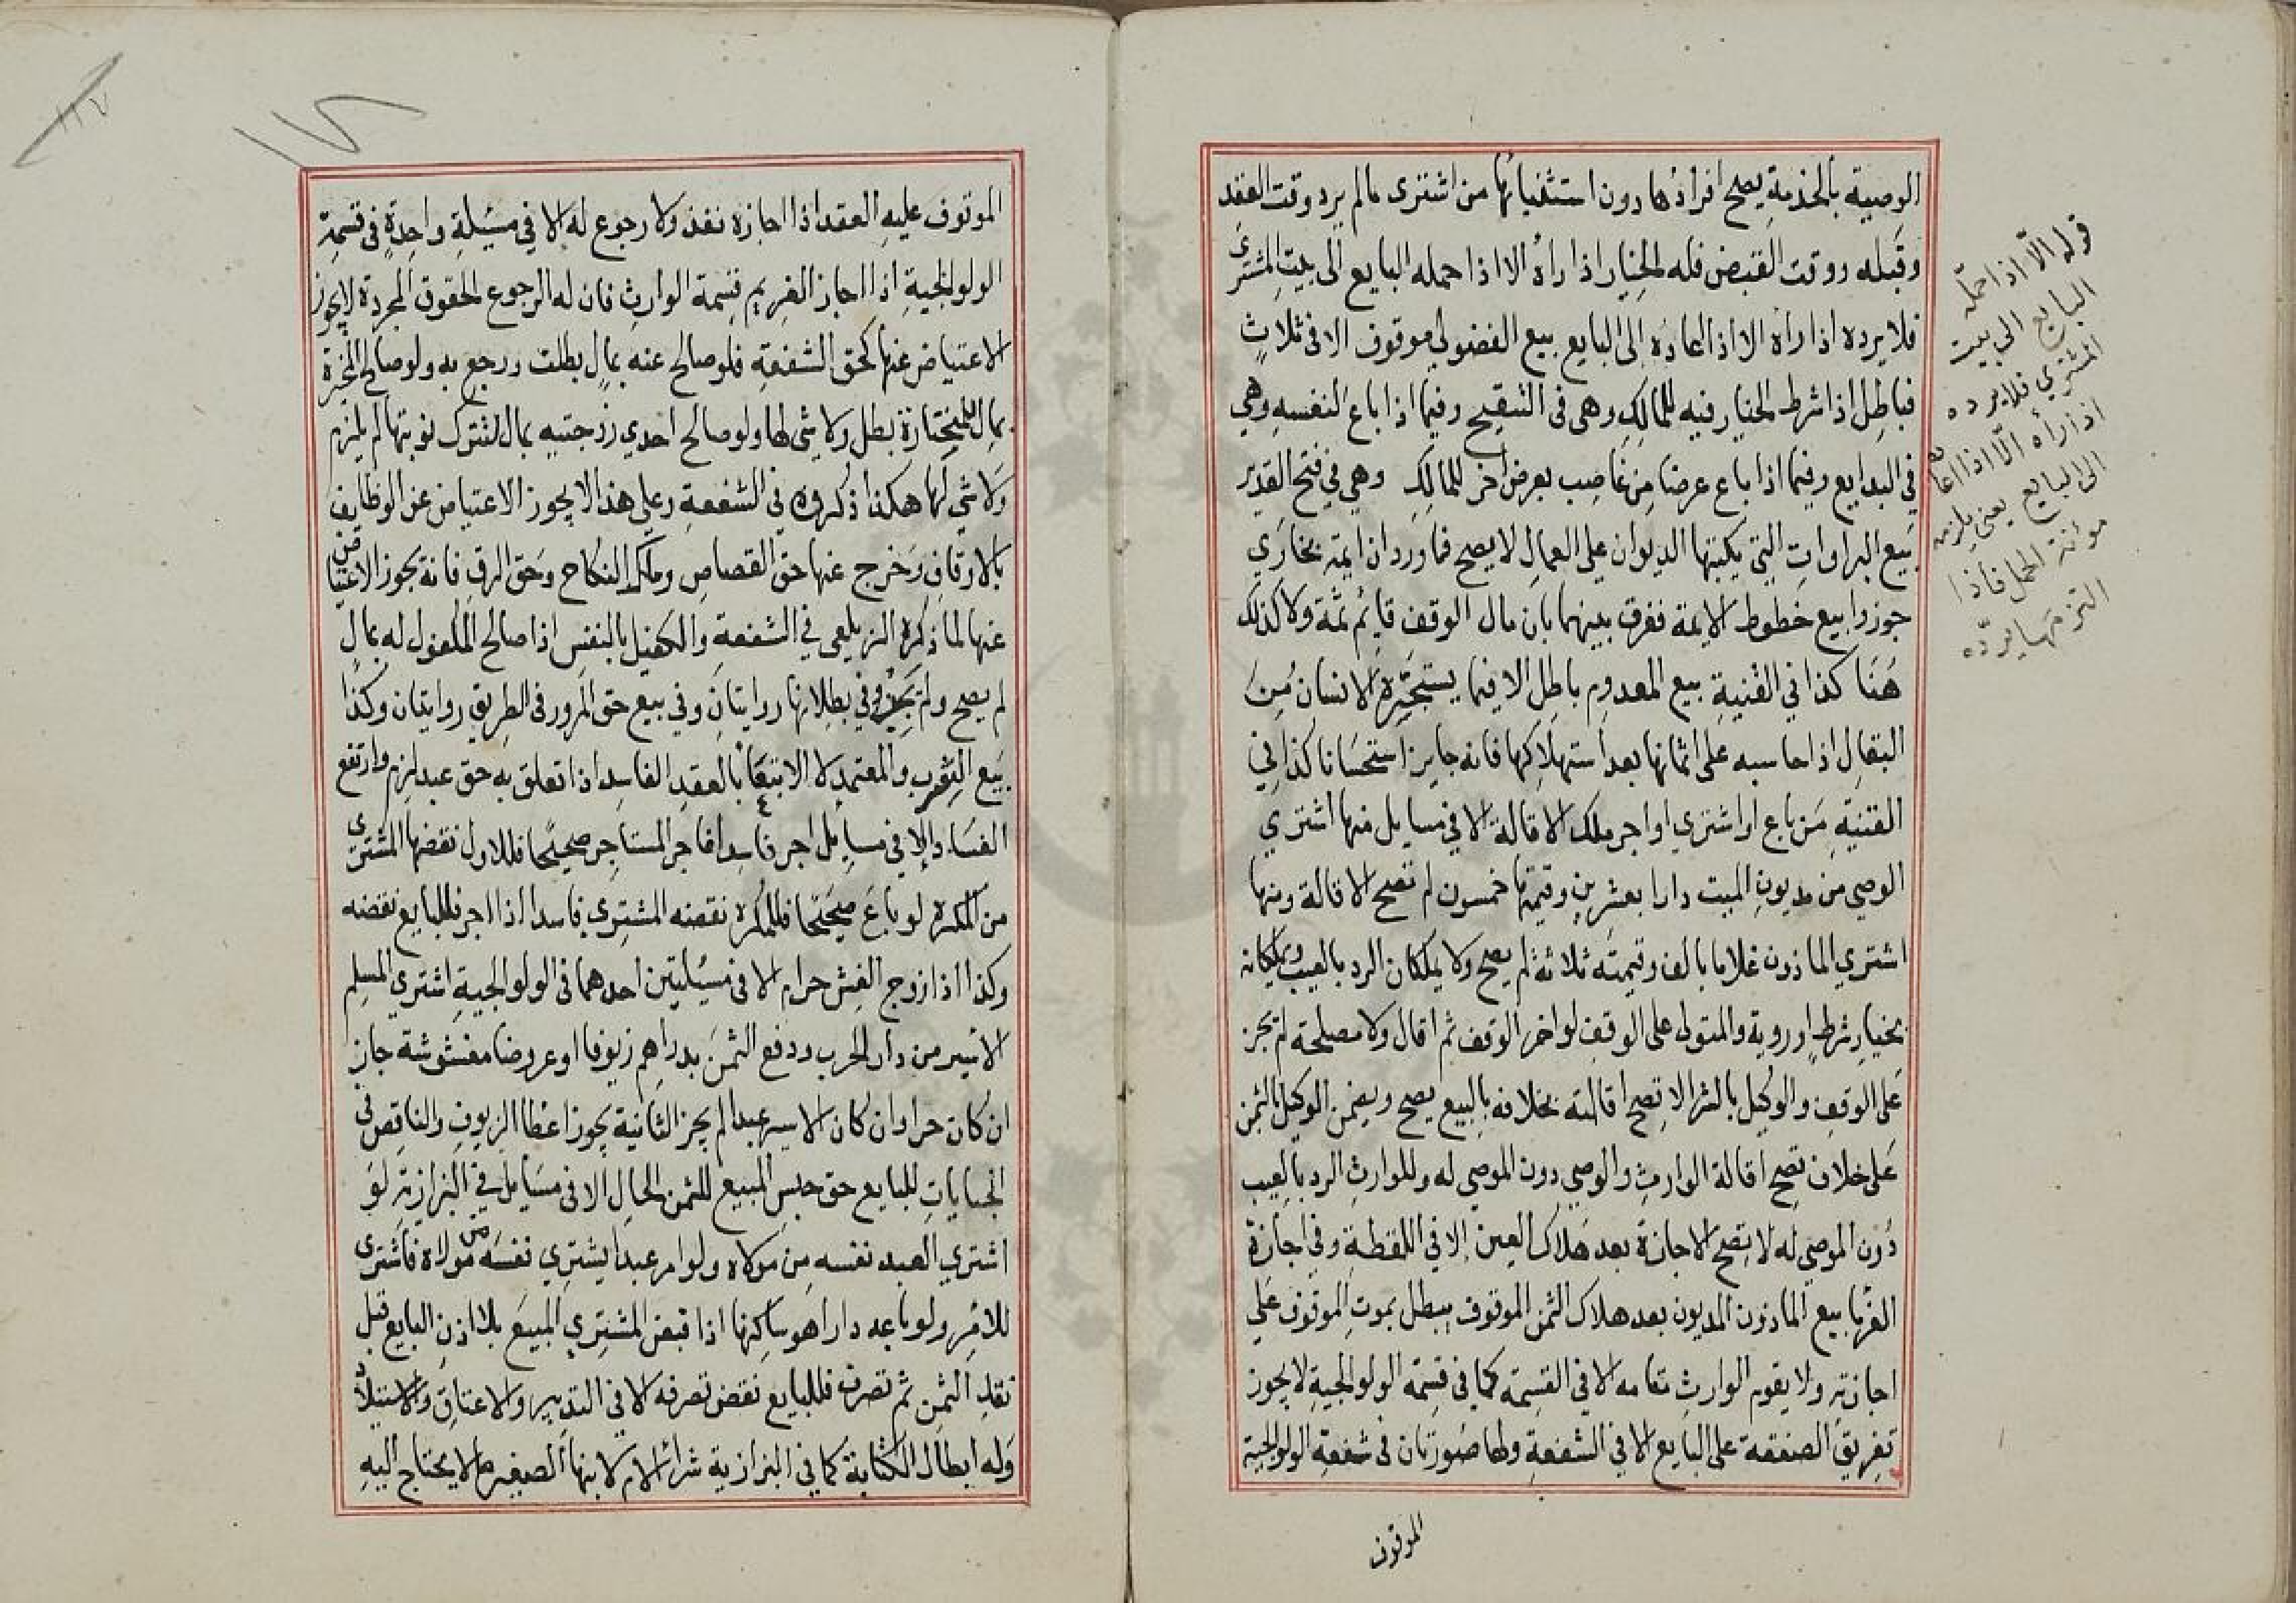 الوصية بالخدمة يصح افرادها دون استثنيائها من اشترى مالم يره وقت العقد
وقبله ووقت القبض فله الخيار اذا رأه الا اذا حمله البايع الى بيت المشترى
فلا يرده اذا رأه الا اذا اعاده الى البايع بيع الفضولي موقوف الا فى ثلاث
فباطل اذا شرط الخيار فيه للمالك وهى فى التنقيح وفيما اذا باع لنفسه وهي
في البدايع وفيما اذا باع عرضا من غاصب بعرض اخر للمالك وهي في فتح القدير
بيع البراوات التي يكتبها الديوان على العمال لا يصح فما ورد ان ايمة بخارى
جوزوا بيع خطوط الايمة ففرق بينهما بان مال الوقف قايم ثمة ولا كذلك
هنا كذا في القنية بيع المعدوم باطل الا فيما يستجره الانسان من
البقال اذا حاسبه على اثمانها بعد استهلاكها فانه جايز استحسانا كذا في
القنية من باع او اشترى او اجر ملك الاقالة الا في مسايل منها اشترى
الوصي من مديون الميت دارا بعشرين وقيمتها خمسون لم تصح الاقالة ومنها
اشترى الماذون غلاما بالف وقيمته ثلاثة لم يصح ولا يملكان الرد بالعيب ويملكانه
بخيار شرط او روية والمتولى على الوقف لو اخر الوقف ثم اقال ولا مصلحة لم يجز
على الوقف والوكيل بالشرا لا تصح اقالته بخلافه بالبيع يصح ويضمن الوكيل بالثمن
على خلاف تصح اقالة الوارث والوصي دون الموصى له وللوارث الرد بالعيب
دون الموصى له لا تصح الاجازة بعد هلاك العين الا في اللقطة وفى اجازة
الغرما بيع الماذون المديون بعد هلاك الثمن الموقوف يبطل بموت الموقوف على
اجازته ولا يقوم الوارث مقامه الا فى القسمة كما فى قسمة الولوالجية لا يجوز
تفريق الصفقة على البايع الا في الشفعة ولها صورتان فى شفعة الولوالجية
الموقوف
قوله الا اذا حمله
البايع الى بيت
المشتري فلا يرده
اذا رأه الا اذا اعاده
الى البايع يعنى يلزمه
موئنة الحمل فاذا
التزمها يرده
١١٧
الموقوف عليه العقد اذا اجازه نفذ ولا رجوع له الا في مسيلة واحدة فى قسمة
الولوالجية اذا اجاز الغريم قسمة الوارث فان له الرجوع الحقوق المجردة لا يجوز
الاعتياض عنها كحق الشفعة فلو صالح عنه بمال بطلت ورجع به ولو صالح المخيرة
بمال للمختارة بطل ولا شى لها ولو صالح احدي زوجتيه بمال لتترك نوبتها لم يلزم
ولا شي لها هكذا ذكروه فى الشفعة وعلى هذا لا يجوز الاعتياض عن الوظايف
بالاوقاف وخرج عنها حق القصاص وملك النكاح وحق الرق فانه يجوز الاعتياض
عنها لما ذكره الزيلعى في الشفعة والكفيل بالنفس اذا صالح المكفول له بمال
لم يصح ولم يجز وفي بطلانها روايتان وفي بيع حق المرور فى الطريق روايتان وكذا
بيع الشرب والمعتمد لا الا تبعا بالعقد الفاسد اذا تعلق به حق عبد لزم وارتفع
الفساد الا في مسايل اجر فاسدا فاجر المستاجر صحيحا فللاول نقضها المشترى
من المكره لو باع صحيحا فللمكره نقضه المشترى فاسدا اذا اجر فللبايع نقضه
وكذا اذا زوج الغش حرام الا فى مسيلتين احدهما فى الولوالجية اشترى المسلم
الاسير من دار الحرب ودفع الثمن بدراهم زيوفا او عروضا مغشوشة جاز
ان كان حرا وان كان الاسير عبدا لم يجز الثانية يجوز اعطا الزيوف والناقص فى
الجبايات للبايع حق حبس المبيع للثمن الحال الا فى مسايل فى البزازية لو
اشترى العبد نفسه من مولاه ولو امر عبدا يشترى نفسه من مولاه فاشترى
للامر ولو باعه دارا هو ساكنها اذا قبض المشترى المبيع بلا اذن البايع قبل
نقد الثمن ثم تصرف فللبايع نقض تصرفه الا في التدبير والاعتاق والاستيلاد
وله ابطال الكتابة كما في البزازية شرا الام لابنها الصغير ما لا يحتاج اليه